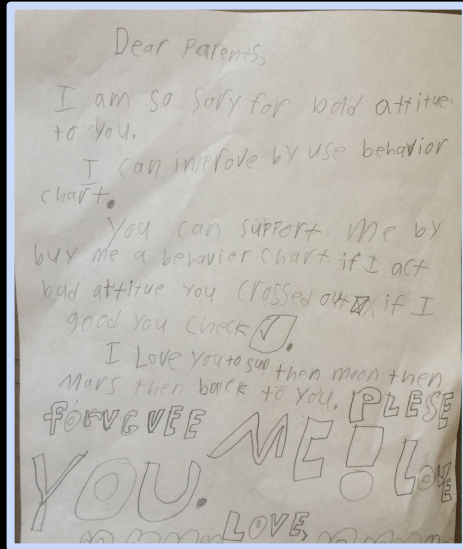 Dear Parents,
I am so sory for bad attitue
to you.
I can improve by use behavior
chart.
You can support me by
buy me a behavior chart if I act
bad attitue you crossed out☒ if I
good you check ☑.
I Love you to sun then moon then
Mars then back to you. PLESE
foRVGVEE ME! LOVE
YOU.
LOVE,